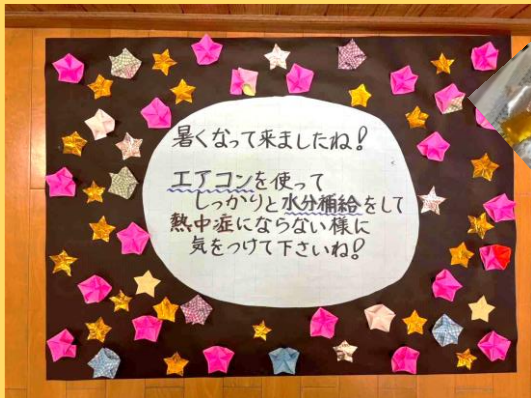 暑くなって来ましたね!
エアコンを使って
しっかりと水分補給をして
熱中症にならない様に
気をつけて下さいね!